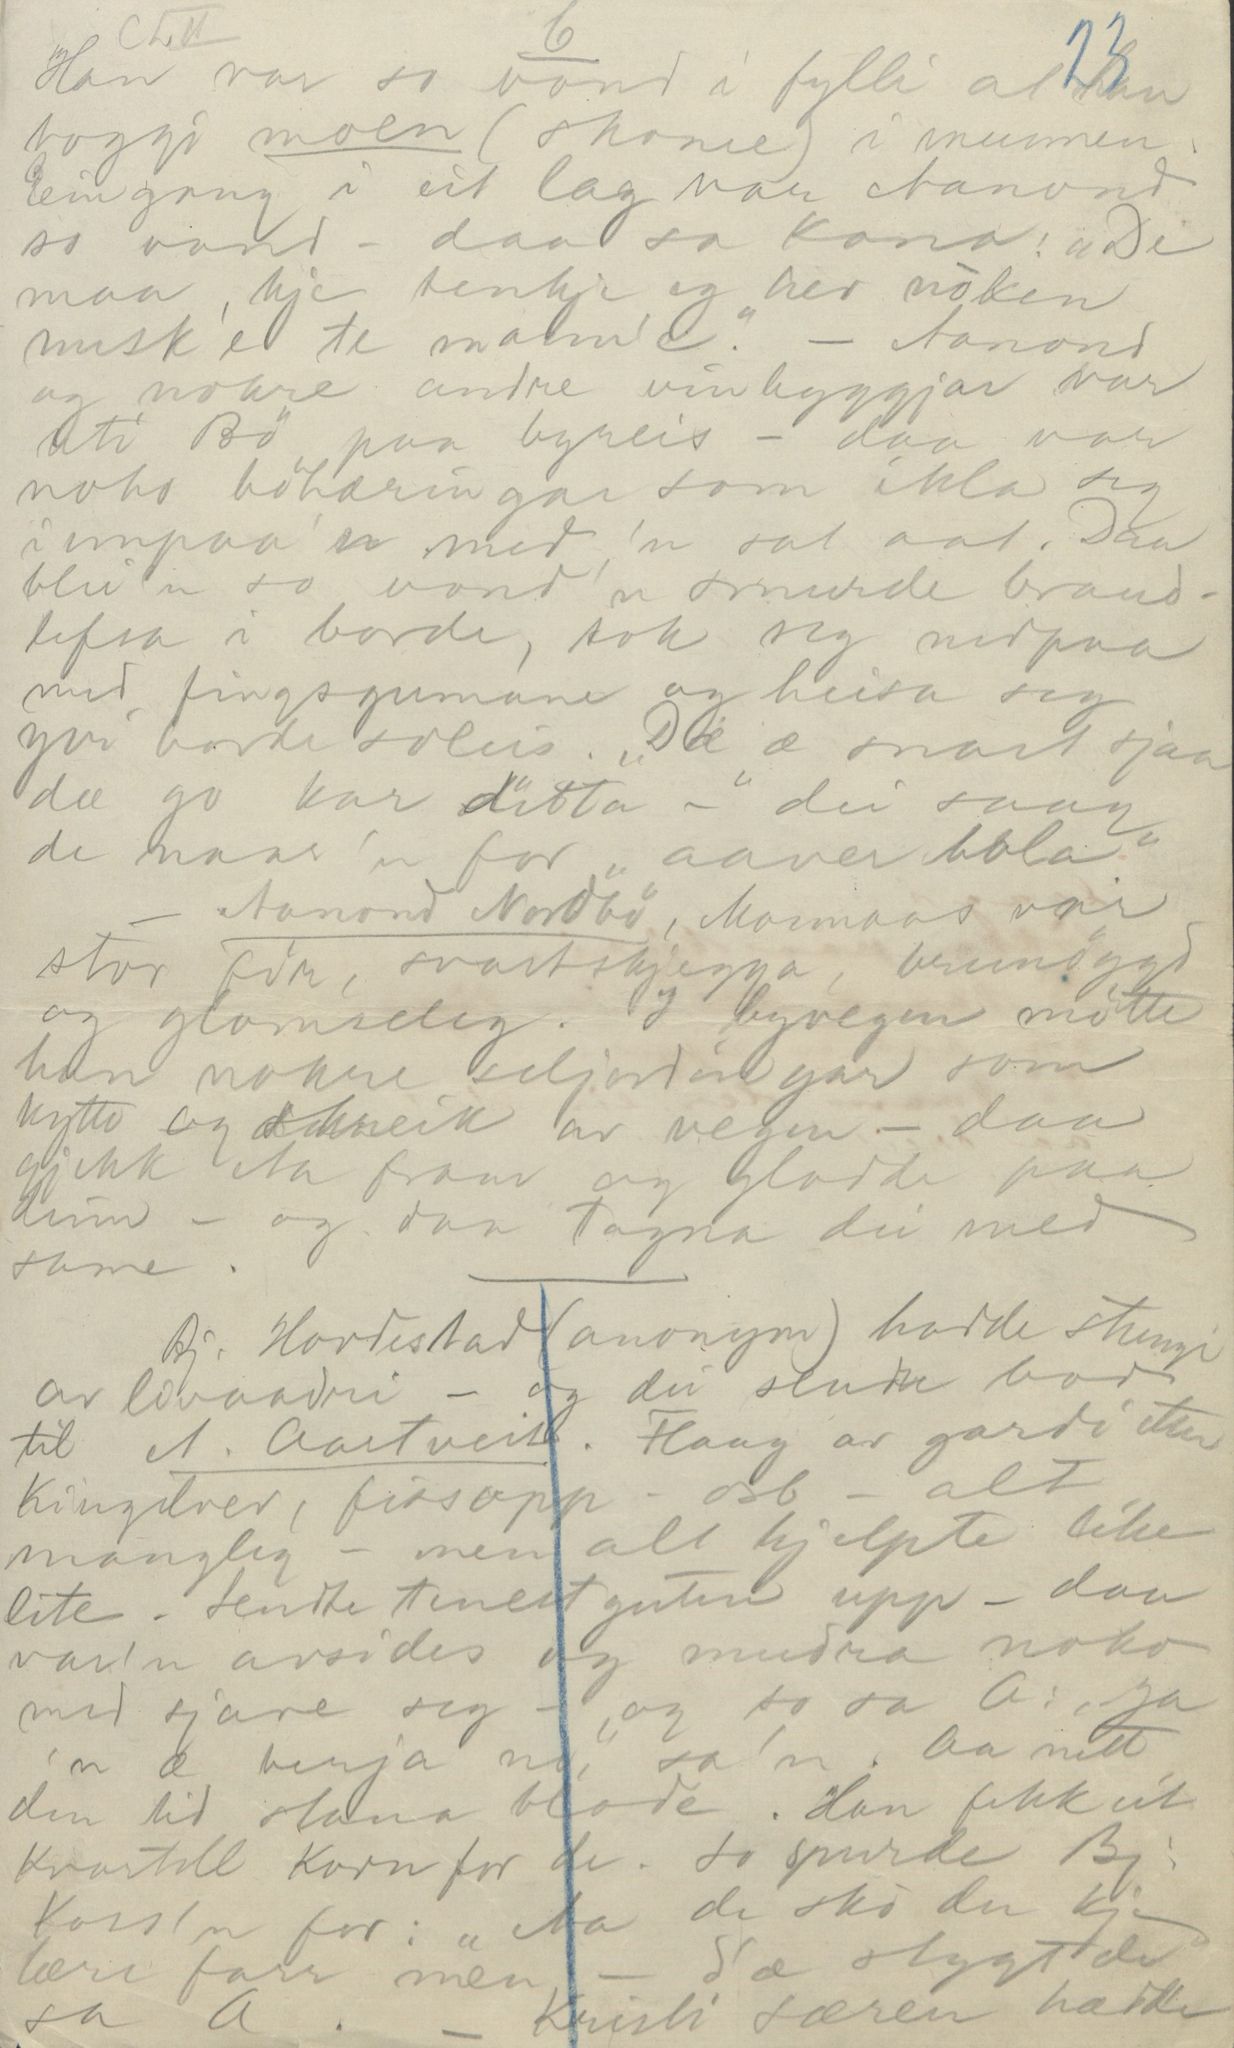 6
23
Han var so vond i fylli at han
toggi moen (skone) i munnen.
Eingong i eit lag var Aanond
so vond - daa sa kona: "Di
maa 'kje tenkje eg her nöken
misk'e te mann'e." - Aanond
og nokre andre vinbyggjar var
uti Bö paa byreis - daa var
noko böhæringar som ikla seg
innpaa'n med 'n sat aat. Daa
blei'n so vond 'n smurde braud-
lefsa i borde, tok seg nedpaa
med fingsgumane og heisa seg
yvi borde soleis. "Dæ æ snart sjaa
dæ go kar ditta -" dei saag
de naar'n for "aaver bola"
- Aanond Nordbö, Mormoas var
stor før, svartskjegga, brunöygd
og glomseleg. I byvegen mötte
han nokre seljordingar som
kytte og skreik av vegen - daa
gjekk Aa fram og glodde paa
deim - og daa tagna dei med
same.
Bj. Hordestad (anonym) hadde stungi
av livaadri - og dei sendte bod
til A. Aartveit. Flaug av gardi etter
Kingelvev, fissopp - osb - alt
mangleg - men alt hjelpte like
lite. Sendte tenestguten upp - daa
var'n avsides og mudra noko
med sjave seg - og so sa A: "ja
'n æ berja no," sa'n. Aa nett
den tid stana blode. Han fekk eit
kvartell korn for de. So spurde Bj.
koss'n for: "Aa de sko du kje
lære farr men - d'æ stygt de
sa A. - Kristi særen hadde